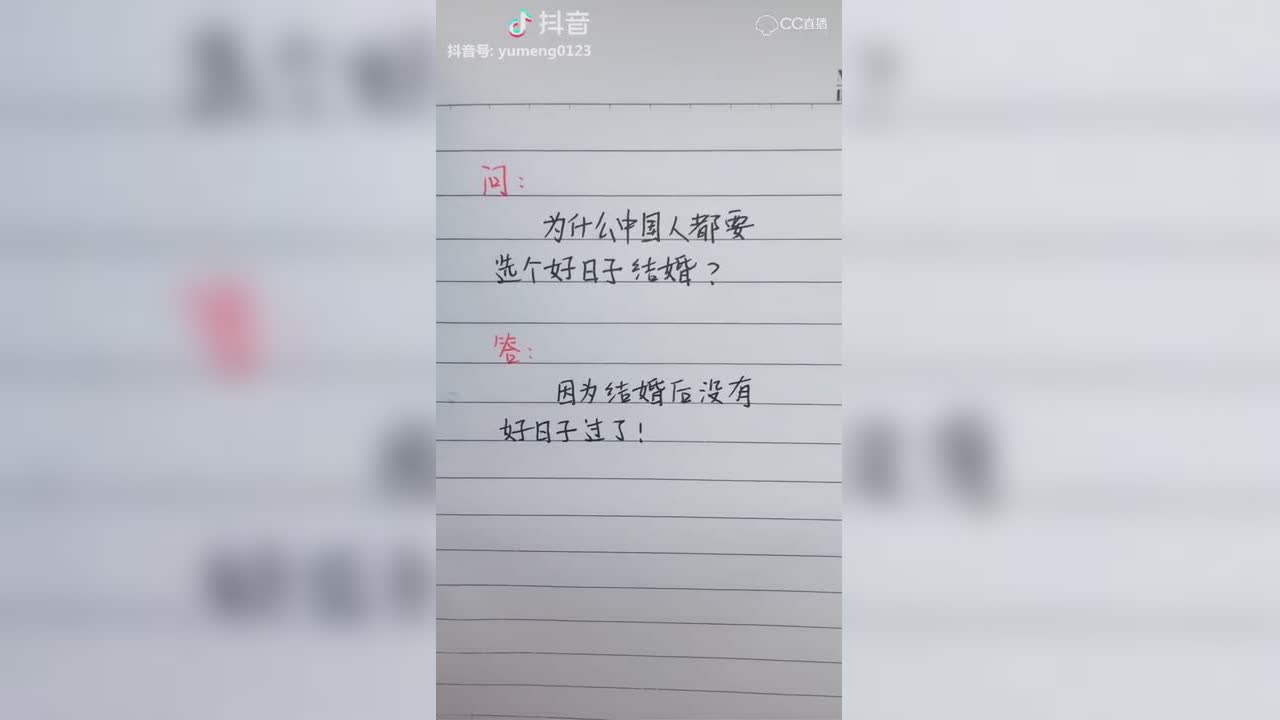 抖音
CC直播
抖音号: yumeng0123
问:
为什么中国人都要
选个好日子结婚?
答:
因为结婚后没有
好日子过了!